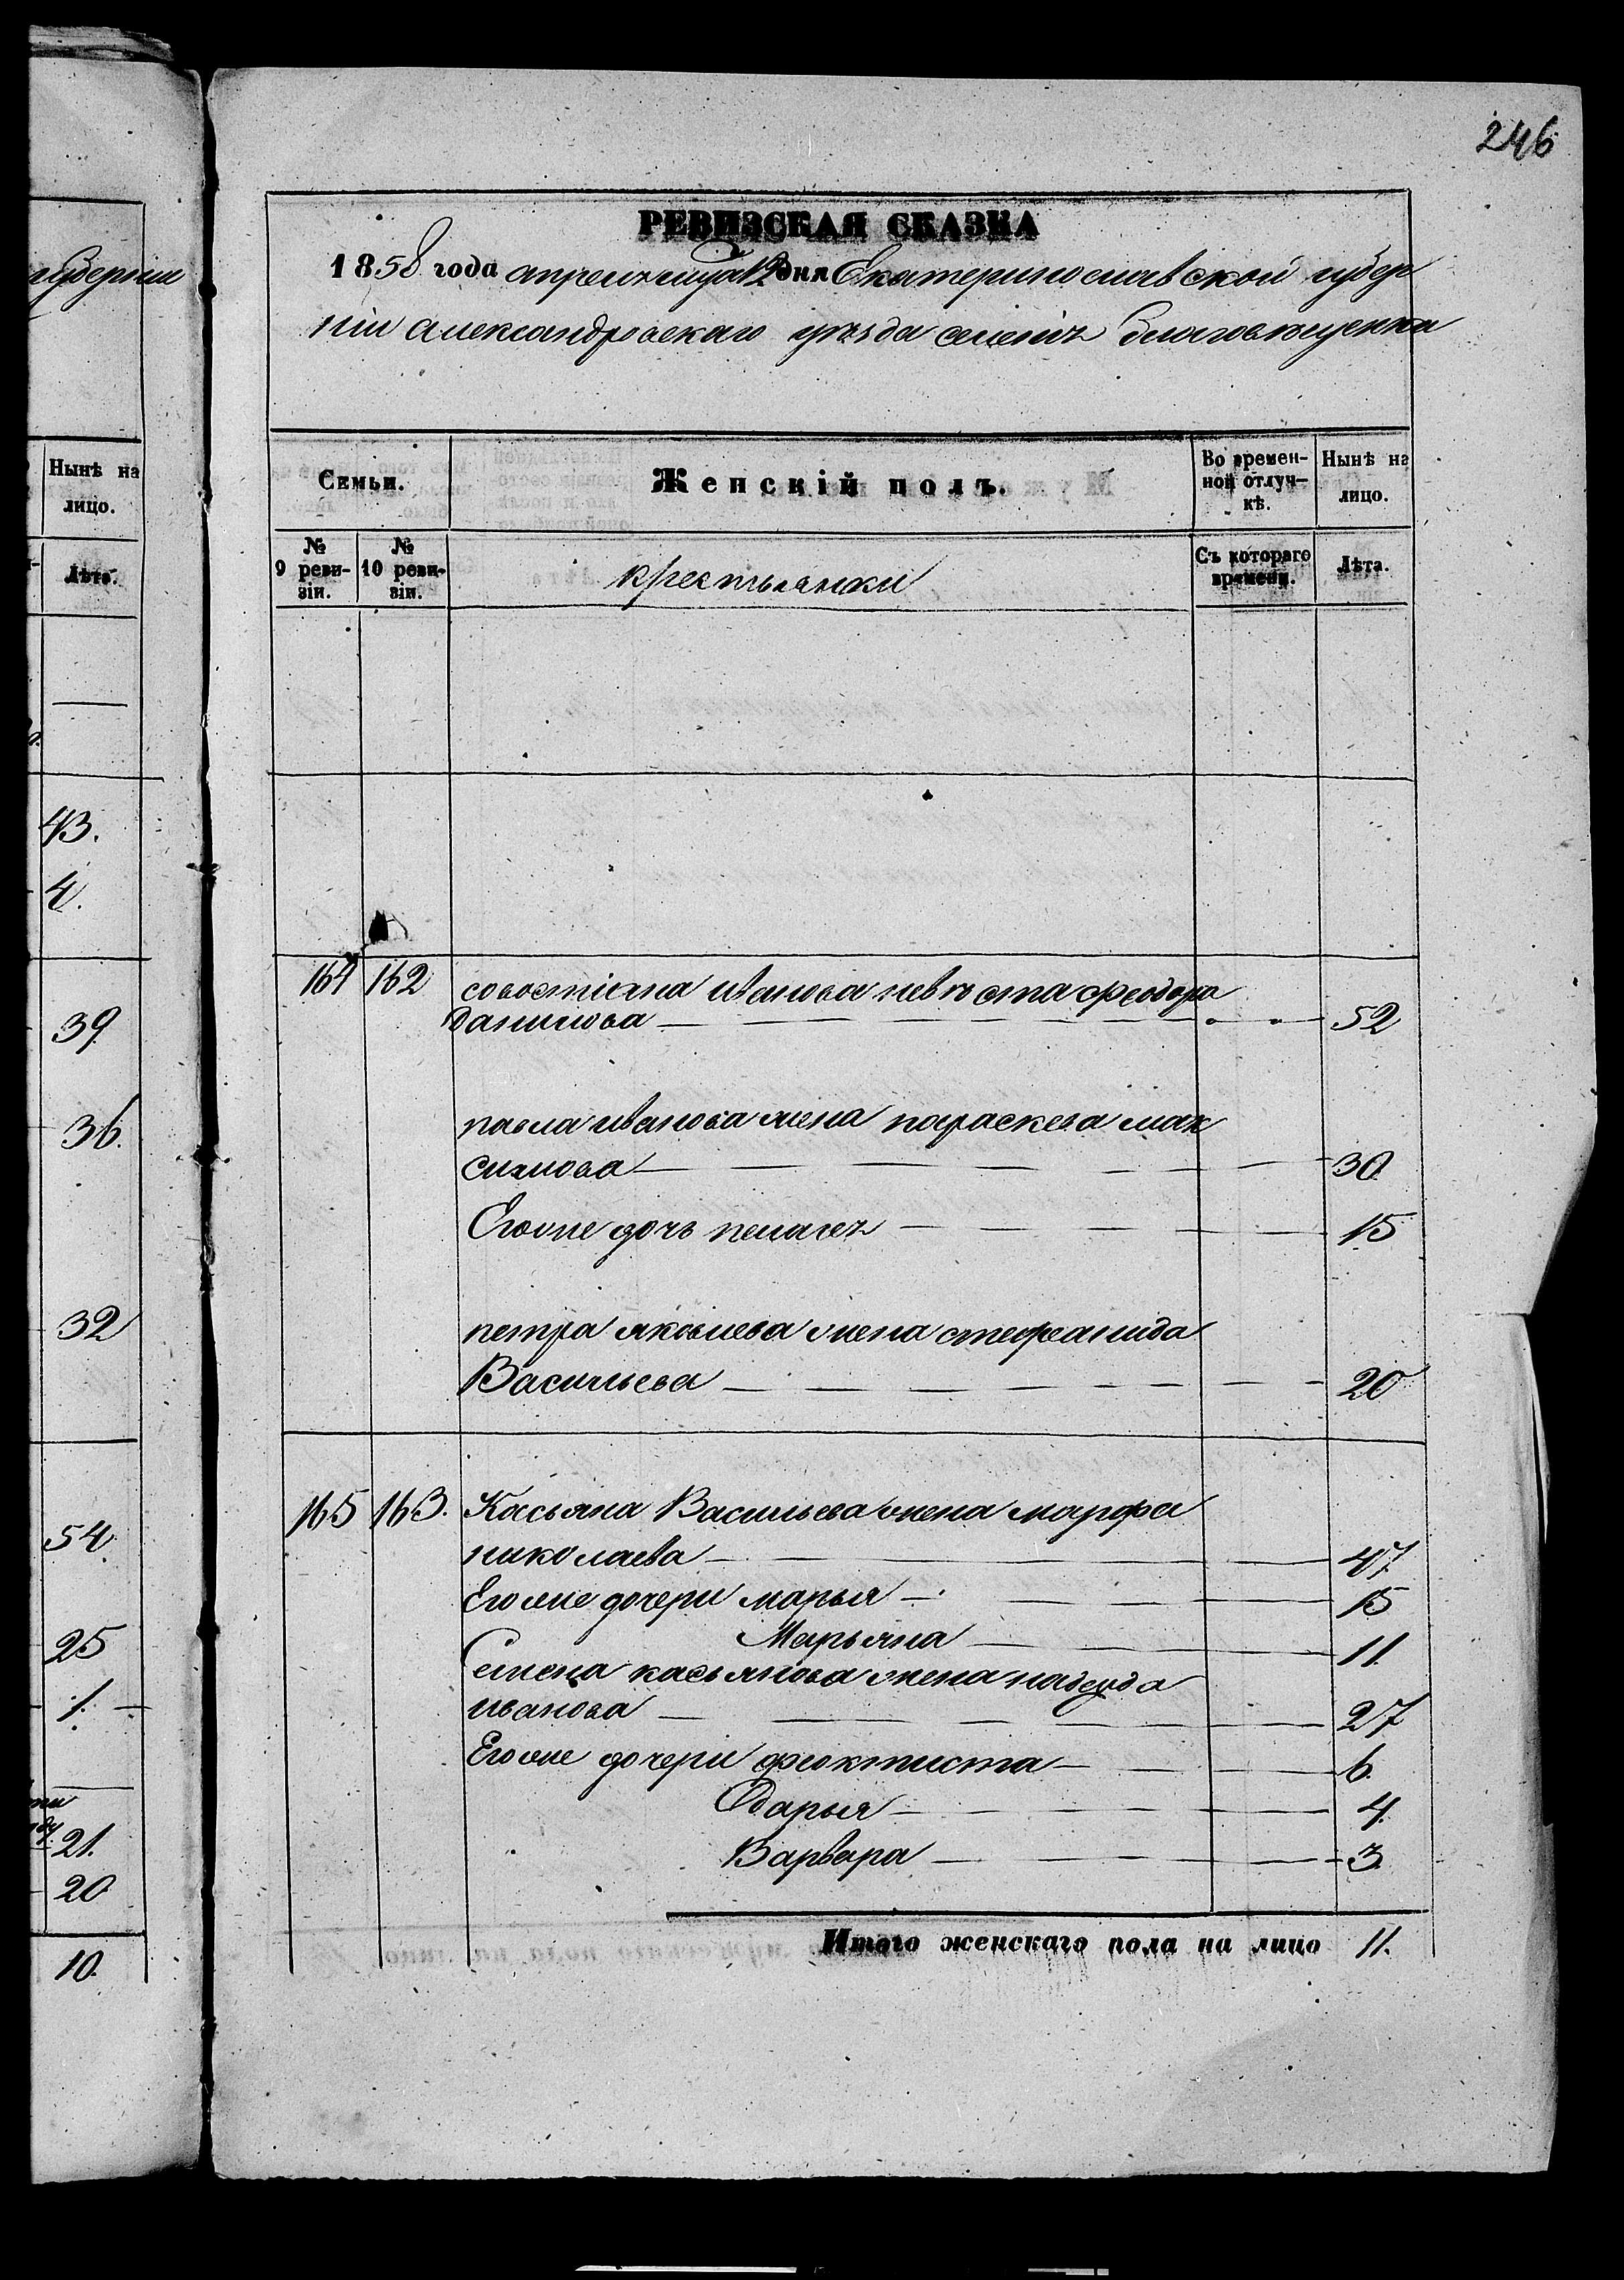 246
губернiи
РЕВИЗСКАЯ СКАЗКА
1858 года апреля 12 дня Екатеринославской губер
нiи александровскаго уезда селенiя благовещенки
Нынѣ на
лицо.
Лѣта.
43.
4.
39
36.
32
54.
25
1.
21.
20
10.
Семьи.
Женскiй полъ.
Во времен-
ной отлуч-
кѣ.
Нынѣ на
лицо.
№
9 реви-
зiи.
№
10 реви-
зiи.
крестьянки
Съ котораго
времени.
Лѣта.
164 162 совостiяна иванова невѣста феодора
данилова 52
павла иванова жена параскева мак
симова 30
Егоже дочь пелагея 15
петра яковлева жена стефанида
Васильева 20
165 163. Касьяна Васильева жена марфа
николаева 47
Егоже дочери марья 15
Марьяна 11
Семена касьянова жена
иванова 27
Егоже дочери феоктиста 6.
Одарья 4.
Варвара 3.
Итого женскаго пола на лицо 11.